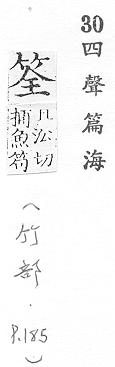 30 四聲篇海
筌
切
捕魚笱
(竹部.P.185)